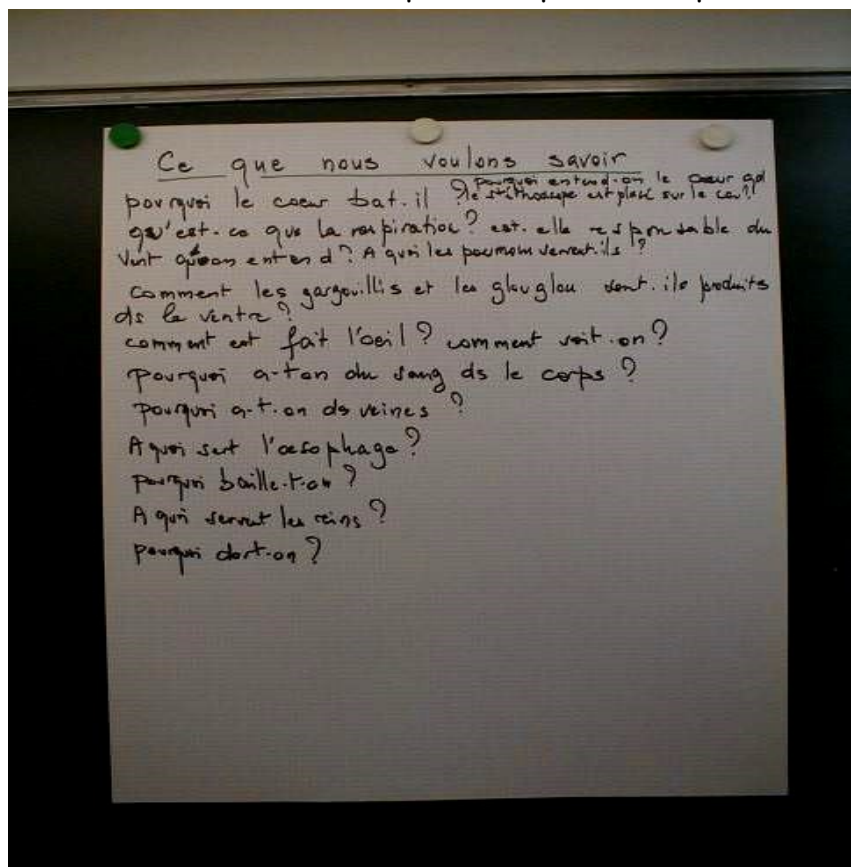 Ce que nous voulons savoir
pourquoi le coeur bat-il ? pourquoi entend-on le coeur qd
le stéthoscope est placé sur le cou ?
qu'est-ce que la respiration ? est-elle responsable du
vent qu'on entend ? A quoi les poumons servent-ils ?
comment les gargouillis et les glouglou sont-ils produits
ds le ventre ?
comment est fait l'oeil ? comment voit-on ?
pourquoi a-t-on du sang ds le corps ?
pourquoi a-t-on ds veines ?
A quoi sert l'oesophage ?
pourquoi baille-t-on ?
A quoi servent les reins ?
pourquoi dort-on ?